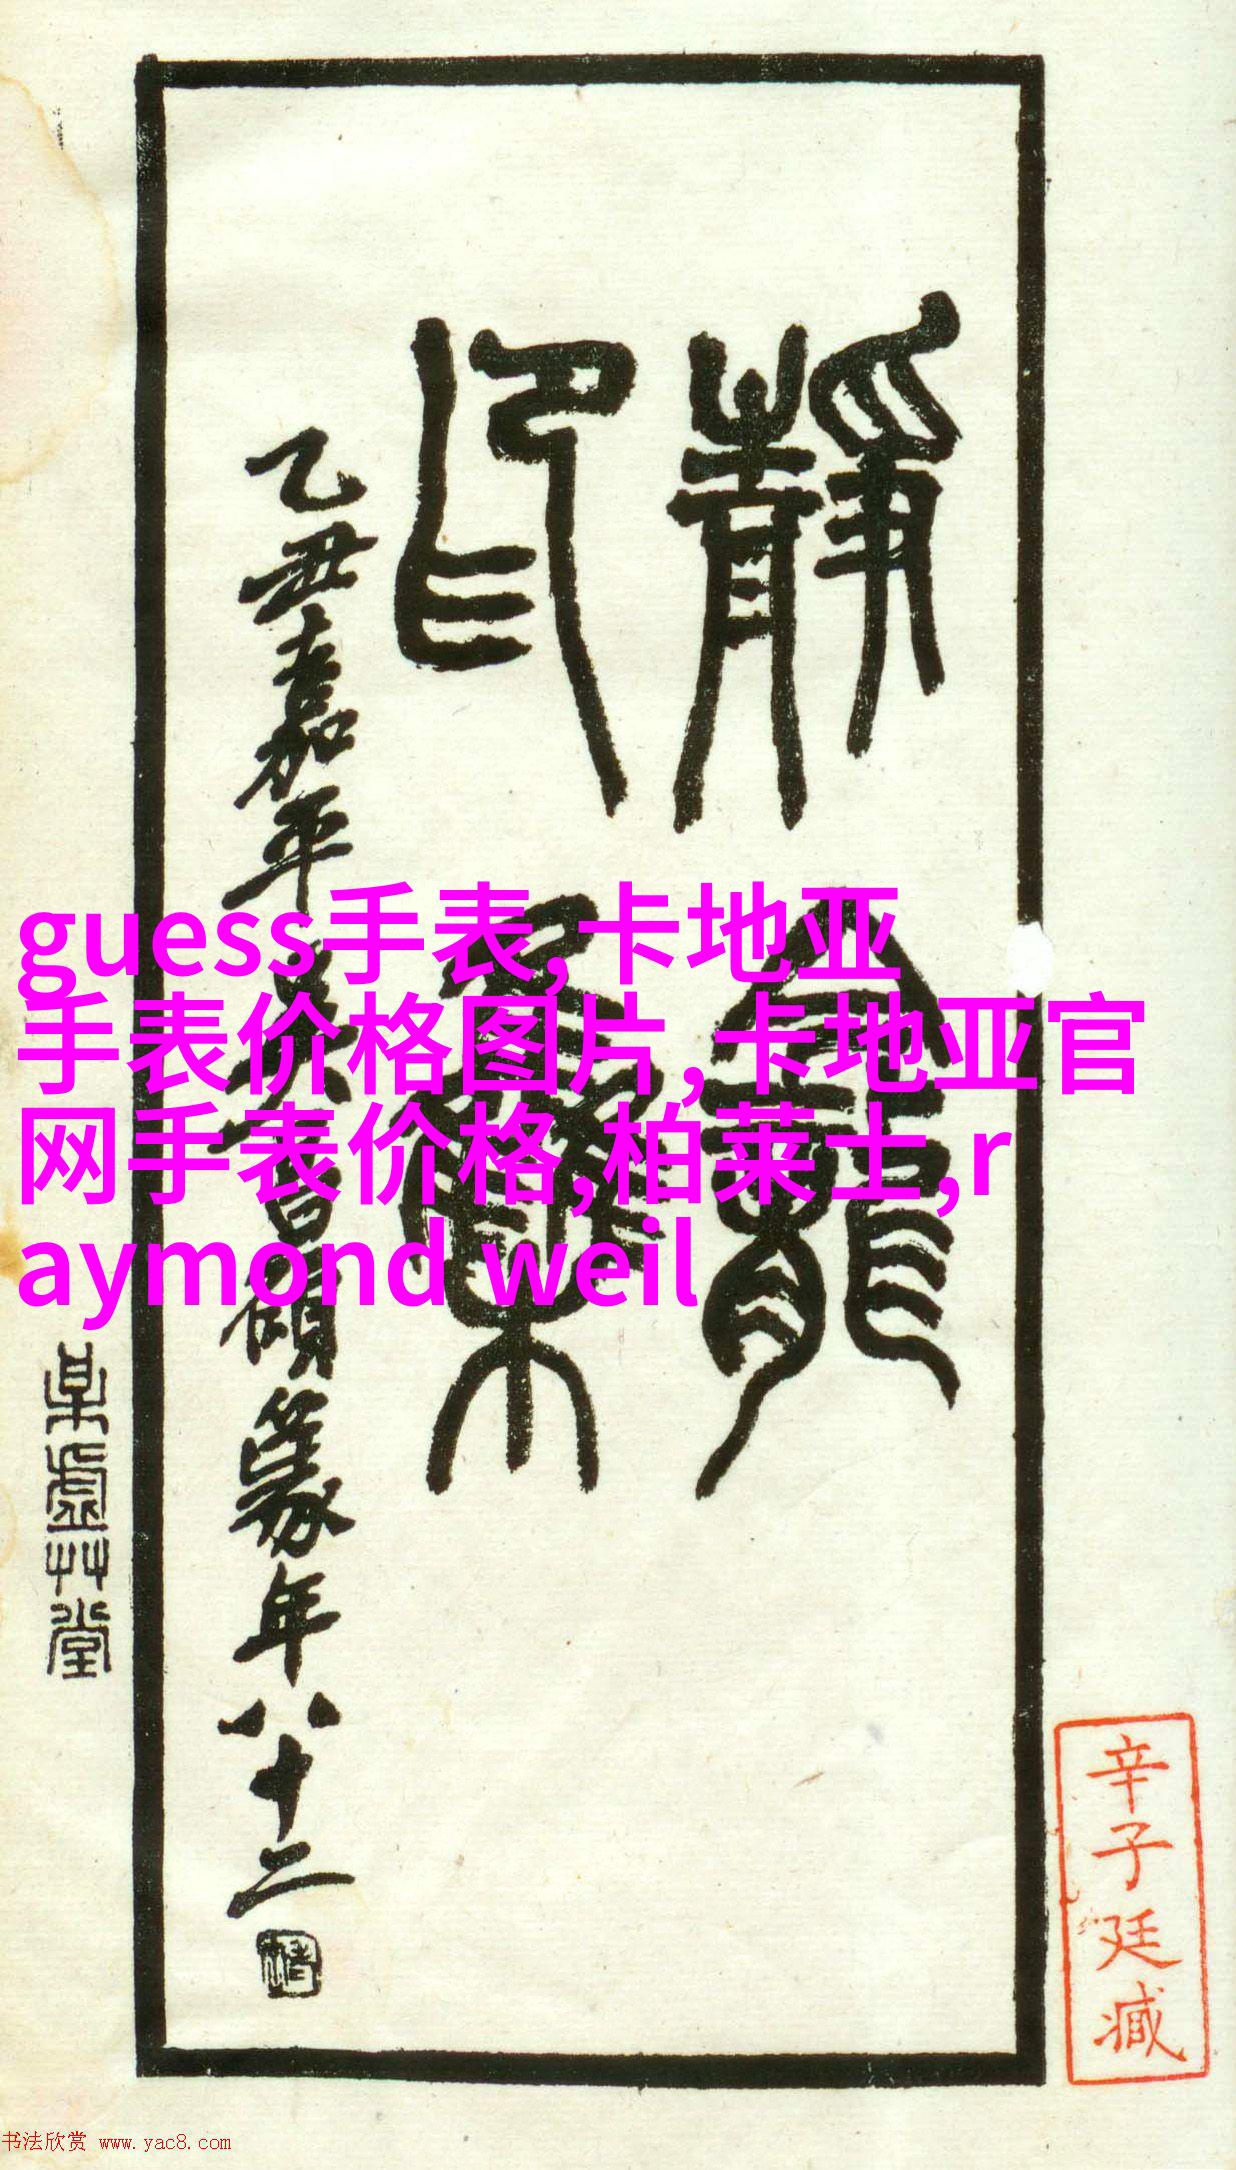 靜龕
印集
乙丑嘉平吳昌碩篆年八十二
某虛艸堂
辛子廷藏
guess手表,卡地亚
手表价格图片,卡地亚官
网手表价格,柏莱士,r
aymond weil
书法欣赏 www.yac8.com